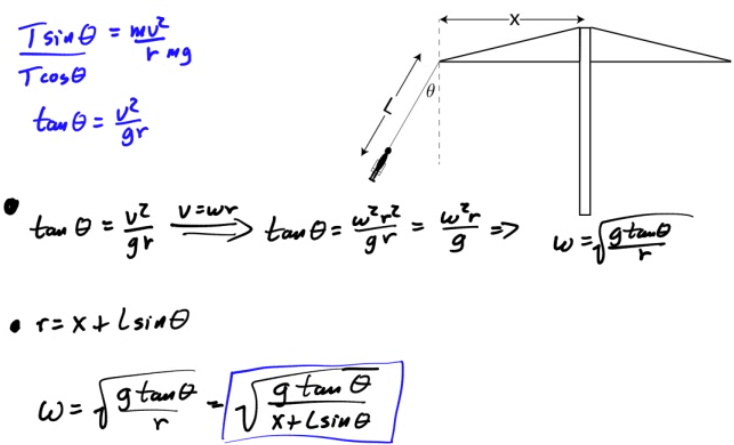 Tsinθ/Tcosθ = mv²/r mg
tanθ = v²/gr
X
θ
L
• tanθ = v²/gr ⟹ (v=ωr) tanθ = ω²r²/gr = ω²r/g => ω = √(g tanθ/r)
• r = x + Lsinθ
ω = √(g tanθ/r) = √(g tanθ/(x+Lsinθ))